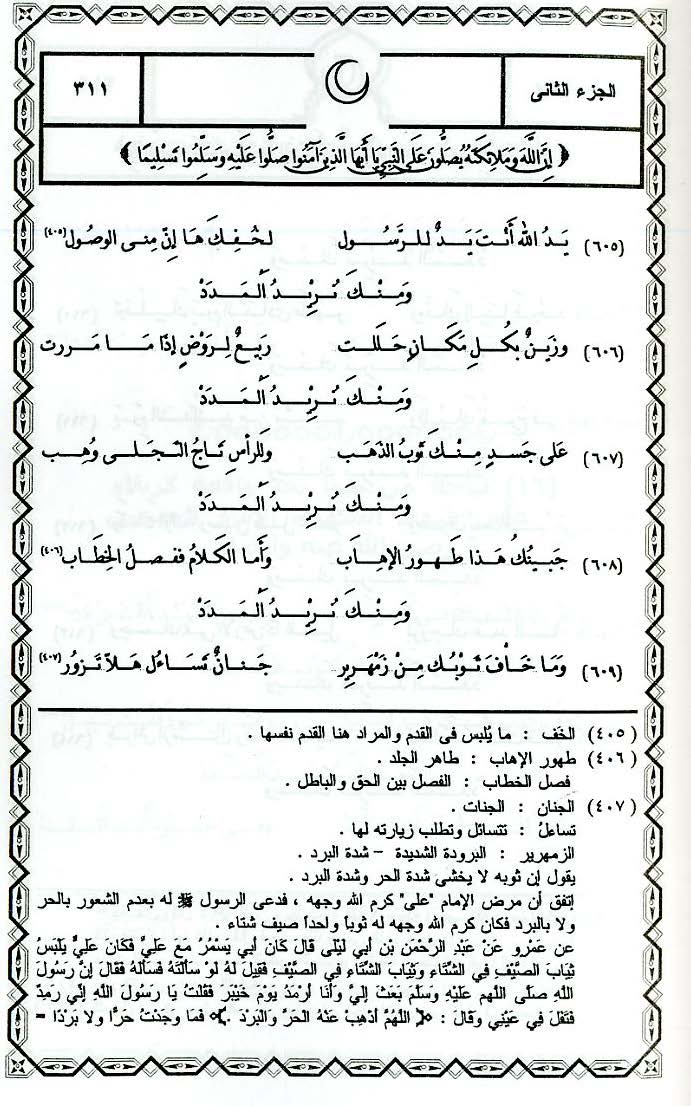 الجزء الثانى
٣١١
﴿ إِنَّ اللَّهَ وَمَلَائِكَتَهُ يُصَلُّونَ عَلَى النَّبِيِّ يَا أَيُّهَا الَّذِينَ آمَنُوا صَلُّوا عَلَيْهِ وَسَلِّمُوا تَسْلِيمًا ﴾
(٦٠٥) يَدُ اللهِ أَنْتَ يَدٌ لِلرَّسُولِ لِخُفِّكَ هَا إِنَّ مِنِى الوصُول(٤٠٥)
وَمِنْكَ نُرِيدُ الْمَدَدْ
(٦٠٦) وزَينٌ بِكُلِ مَكَانٍ حَلَلت رَبِيعٌ لِرَوْضٍ إذَا مَا مَررت
وَمِنْكَ نُرِيدُ الْمَدَدْ
(٦٠٧) عَلى جَسَدٍ مِنْكَ ثَوبُ الذهَب وللرأسِ تَاجُ التَجلى وُهِب
وَمِنْكَ نُرِيدُ الْمَدَدْ
(٦٠٨) جَبِينُكَ هَذَا طَهورُ الإهَاب وَأما الكَلامُ ففصلُ الخِطَاب(٤٠٦)
وَمِنْكَ نُرِيدُ الْمَدَدْ
(٦٠٩) وَمَا خَافَ ثَوْبُكَ مِنْ زَمْهَرِير جَنانٌ تَسَاءَل هَلاّ تَزُور(٤٠٧)
(٤٠٥) الخف : ما يُلبس فى القدم والمراد هنا القدم نفسها .
(٤٠٦) طهور الإهاب : طاهر الجلد .
فصل الخطاب : الفصل بين الحق والباطل .
(٤٠٧) الجنان : الجنات .
تساءلُ : تتسائل وتطلب زيارته لها .
الزمهرير : البرودة الشديدة – شدة البرد .
يقول إن ثوبه لا يخشى شدة الحر وشدة البرد .
إتفق أن مرض الإمام "على" كرم الله وجهه ، فدعى الرسول ﷺ له بعدم الشعور بالحر
ولا بالبرد فكان كرم الله وجهه له ثوباً واحداً صيف شتاء .
عن عَمْرو عَنْ عَبْدِ الرَّحْمَنِ بْنِ أبي لَيْلَى قَالَ كَانَ أبي يَسْمُرُ مَعَ عَلِيٍّ فَكَانَ عَلِيٌّ يَلْبَسُ
ثِيَابَ الصَّيْفِ فِي الشِّتَاءِ وَثِيَابَ الشِّتَاءِ فِي الصَّيْفِ فَقِيلَ لَهُ لَوْ سَأَلْتَهُ فَسَأَلَهُ فَقَالَ إِنَّ رَسُولَ
اللَّهِ صَلَّى اللَّهم عَلَيْهِ وَسَلَّمَ بَعَثَ إِلَيَّ وَأَنَا أَرْمَدُ يَوْمَ خَيْبَرَ فَقُلْتُ يَا رَسُولَ اللَّهِ إِنِّي رَمِدٌ
فَتَفَلَ فِي عَيْنِي وَقَالَ : ﴿ اللَّهُمَّ أَذْهِبْ عَنْهُ الْحَرَّ وَالْبَرْدَ .﴾ فَمَا وَجَدْتُ حَرًّا ولا بَرْدًا =